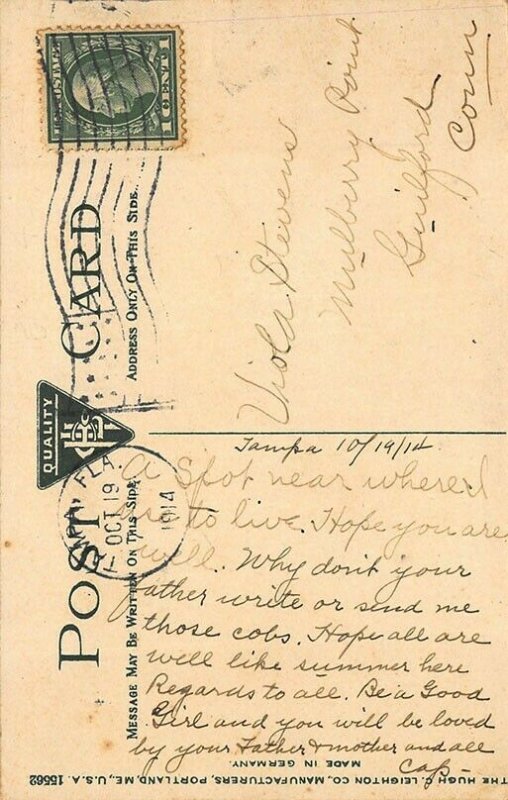 POST CARD
MESSAGE MAY BE WRITTEN ON THIS SIDE.
ADDRESS ONLY ON THIS SIDE.
QUALITY
U.S. POSTAGE
1 CENT 1
TAMPA, FLA.
OCT 19
1914
Viola Stevens
Mulberry Point
Guilford
Conn
Tampa 10/19/14
A Spot near where I
are to live. Hope you are
well. Why don't your
father write or send me
those cobs. Hope all are
well like summer here
Regards to all. Be a Good
Girl and you will be loved
by your Father & mother and all
Cap-
MADE IN GERMANY.
THE HUGH C. LEIGHTON CO., MANUFACTURERS, PORTLAND, ME., U.S.A. 15562